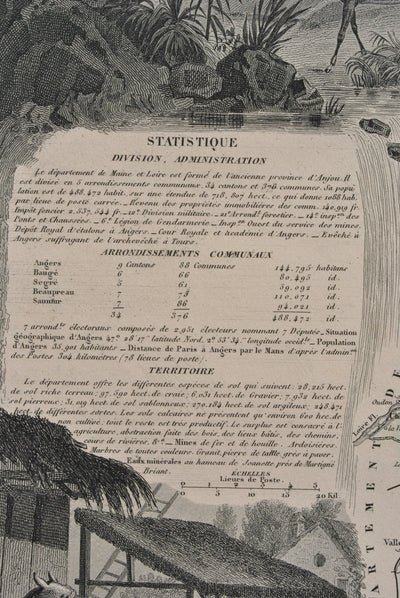 STATISTIQUE
DIVISION, ADMINISTRATION
Le département de Maine et Loire est formé de l'ancienne province d'Anjou. Il
est divisé en 5 arrondissements communaux 34 cantons et 376 communes. Sa popu
lation est de 488,472 habit. sur une étendue de 718,807 hect. ce qui donne 1088 hab.
par lieue de poste carrée. _ Revenu des propriétés immobilières des comm. 140,919 fr.
Impôt foncier 2,537,544 fr _ 12e Division militaire. _ 21e Arrond.t forestier. _ 14e insp.on des
Ponts et Chaussées. _ 6e Légion de Gendarmerie _ Insp.on Ouest du service des mines.
Dépôt Royal d'étalons à Angers. _ Cour Royale et académie d'Angers. _ Evêché à
Angers suffragant de l'archevêché à Tours.
ARRONDISSEMENTS COMMUNAUX
Angers 9 Cantons 88 Communes 144,795 habitans
Baugé 6 66 80,495 id.
Segré 5 61 59,092 id.
Beaupreau 7 110,071 id.
Saumur 7 86 94,021 id.
34 376 488,472 id.
7 arrond.ts électoraux composés de 2,951 électeurs nommant 7 Députés _ Situation
géographique d'Angers 47° 28' 17" latitude Nord. 2° 53' 34" longitude occid.le _ Population
d'Angers 35,901 habitants _ Distance de Paris à Angers par le Mans d'après l'admin.on
des Postes 304 kilomètres (78 lieues de poste).
TERRITOIRE
Le département offre les différentes espèces de sol qui suivent: 28,215 hect.
de sol riche terrau; 97,590 hect. de craie; 6,031 hect. de Gravier; 7,932 hec.
sol pierreux; 31,119 hect. de sol sablonneux; 270,184 hect de sol argileux; 248,472
hect. de différentes sortes. Les sols calcaires ne présentent qu'environ 600 hec. de
non cultivé, tout le reste est très productif. Le surplus est consacré à l'
agriculture, abstraction faite des bois, des lieux bâtis, des chemins,
cours de rivières, &a _ Mines de fer et de houille. _ Ardoisières.
Marbres de toutes couleurs. Granit, pierre de taille grès à paver.
Eaux minérales au hameau de Joanette près de Martigné
Briant.
ECHELLES
Lieues de Poste.
0 1 2 3 4 5
0 5 10 15 20 Kil.
Loire Fl.
Oudon
DE
ARTEMEN
Valle